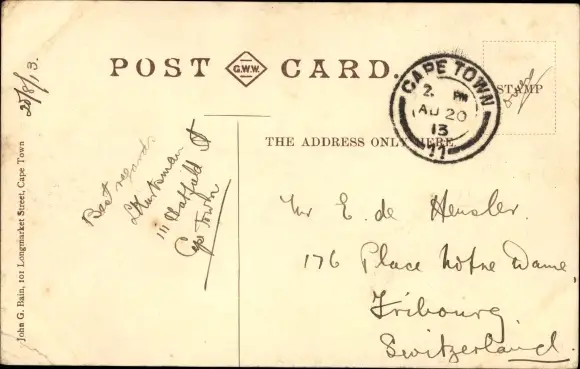 20/8/13.
POST G.W.W. CARD.
CAPE TOWN
2. PM
AU 20
13
11
STAMP
over
THE ADDRESS ONLY HERE.
Best regards
111 Hatfield St
Cape Town
Mr E. de Heusler.
176 Place Notre Dame,
Fribourg,
Switzerland.
John G. Bain, 101 Longmarket Street, Cape Town